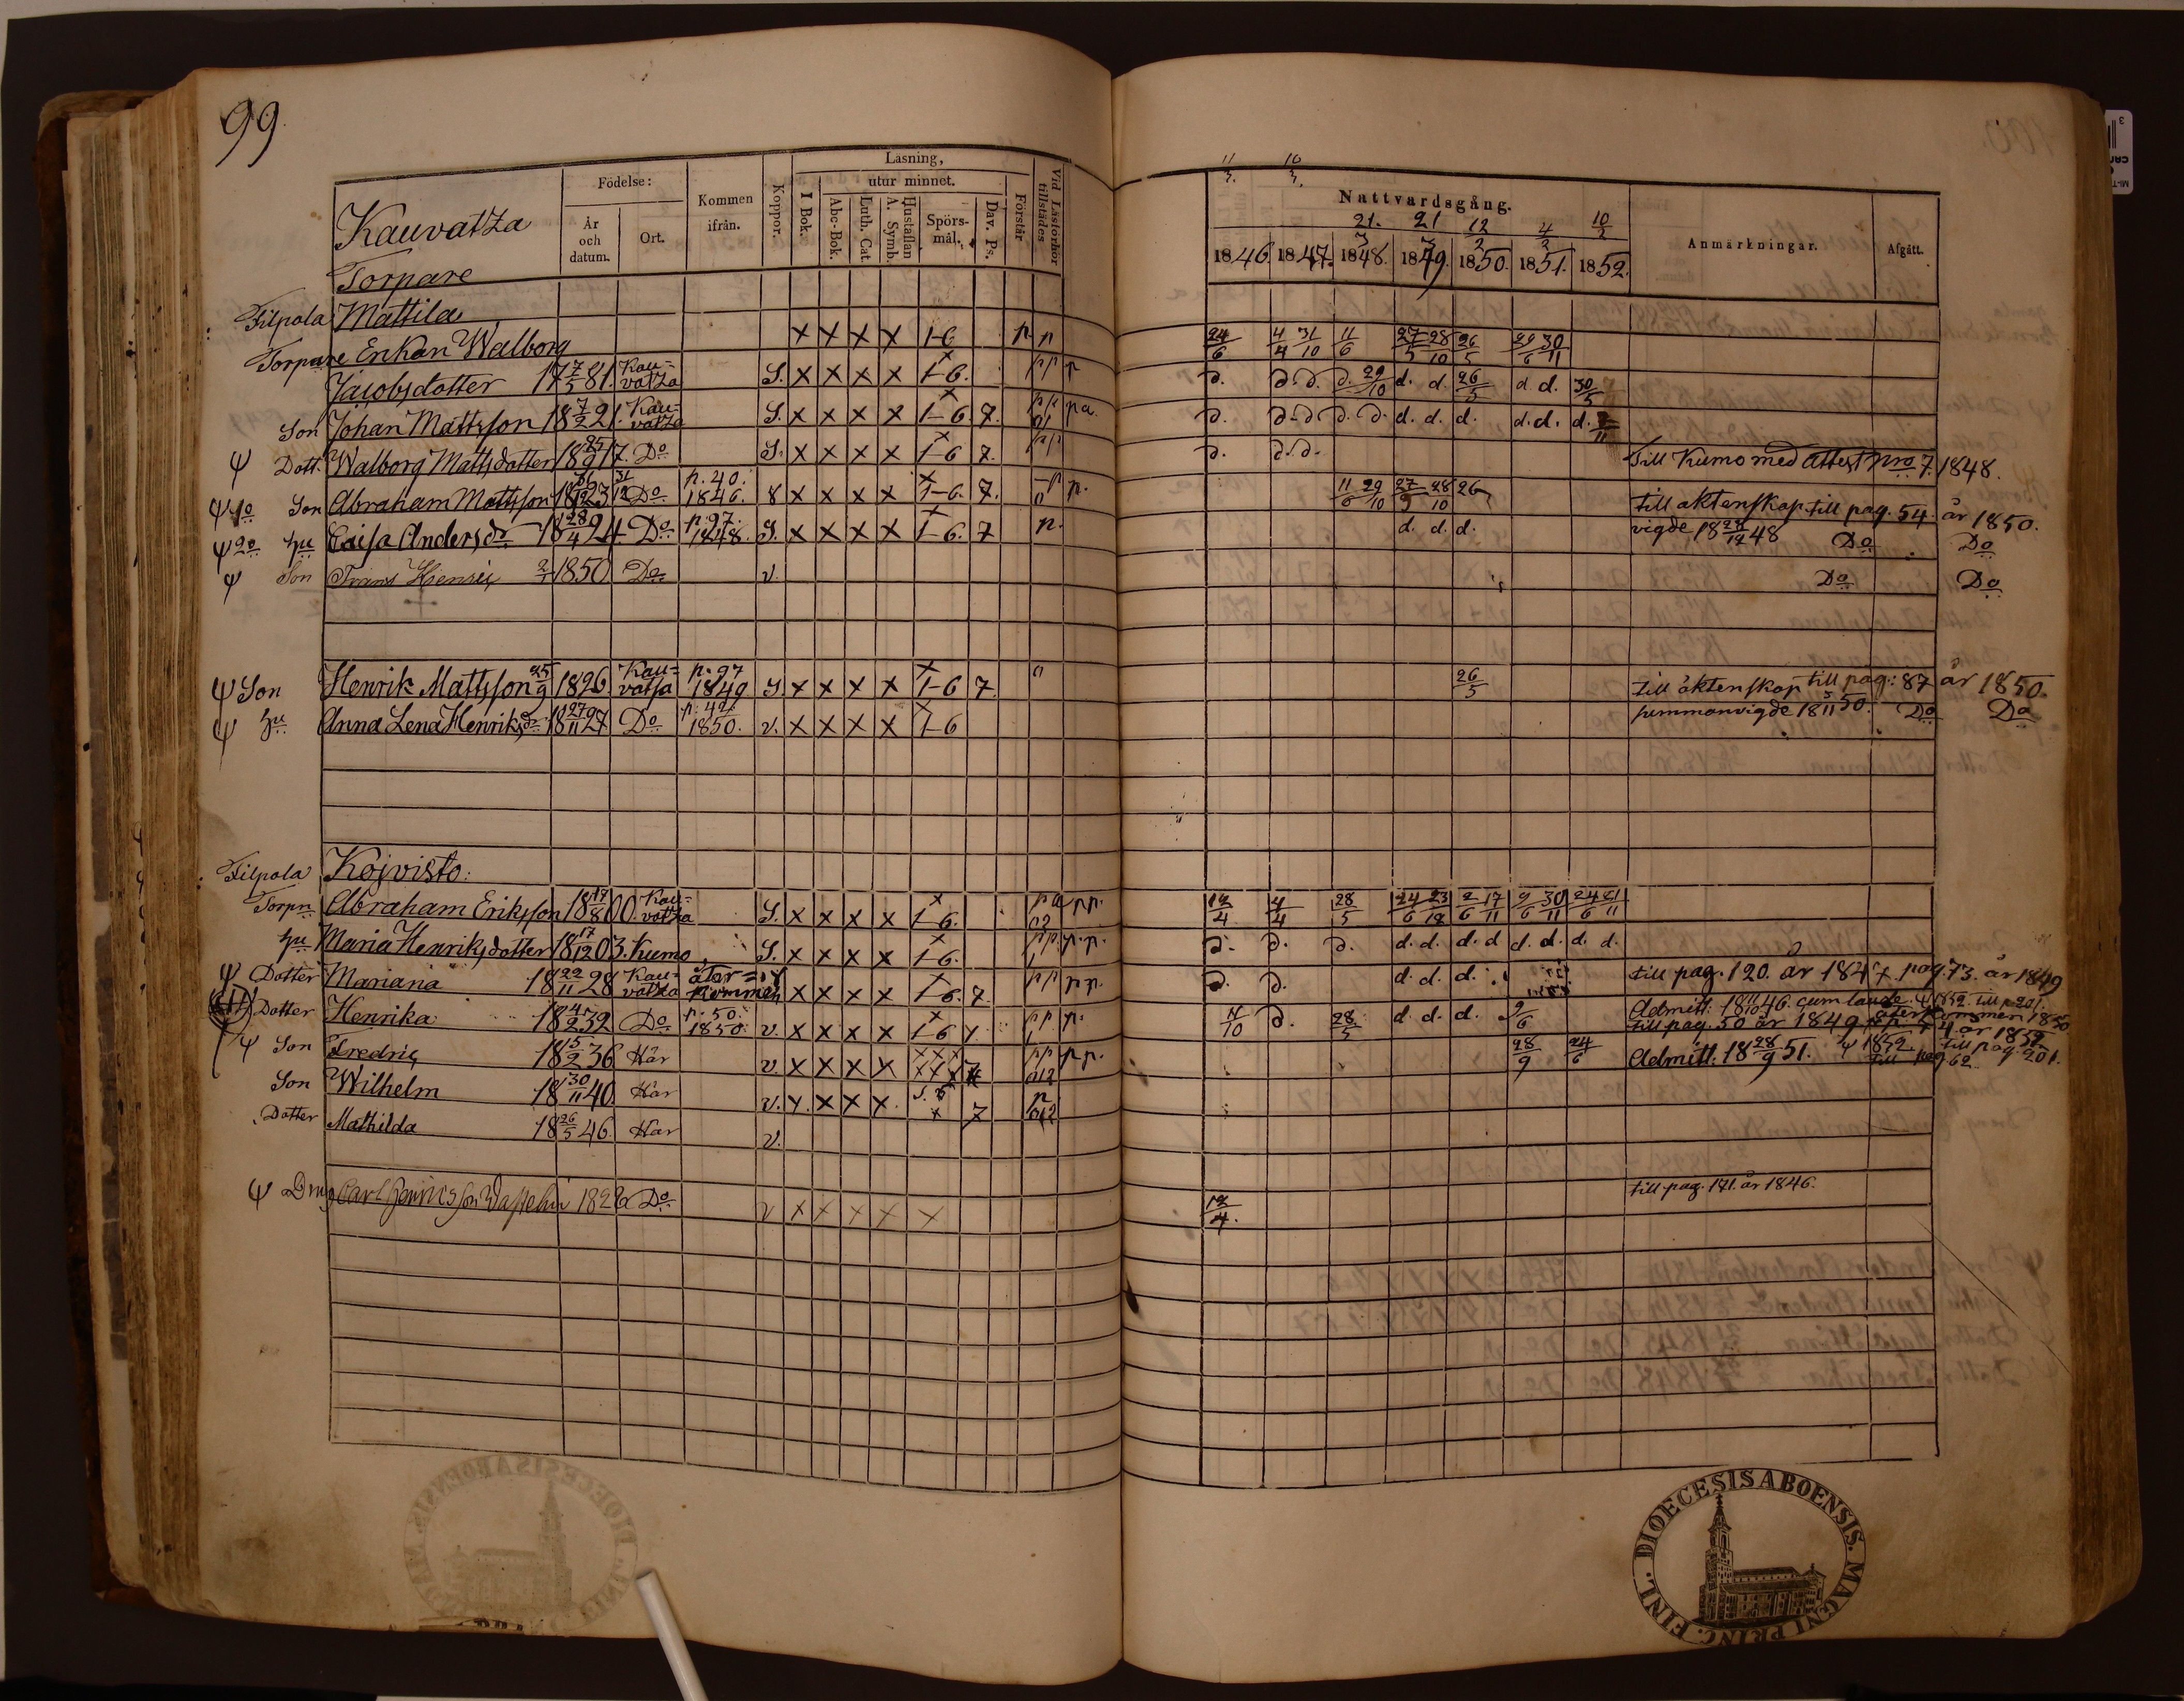 99.
Kauvatza
Torpare
Födelse:
År och datum.
Ort.
Kommen ifrån.
Koppor.
Läsning,
utur minnet.
I Bok.
Abc-Bok.
Luth. Cat.
Hustaflan A. Symb.
Spörs-mål.
Dav. Ps.
Förstår
Vid Läsförhör tillstädes
11/3. 10/3. 21./3 21/3 12/2 4/2 10/2
Nattvardsgång.
1846. 1847. 1848. 1849. 1850. 1851. 1852.
Anmärkningar.
Afgått.
Filpola Mattila
Torpare Enkan Walborg x x x x 1-6 24/6 4/4 31/10 11/6 27/5 28/10 26/5 29/6 30/11
Jacobsdotter 17 7/5 81. Kau=vatza S. x x x x 1-6. d. d. d. d. 29/10 d. d. 26/5 d d. 30/5
Son Johan Mattsson 18 7/2 21. Kau=vatza S. x x x x 1-6 7. d. d-d d. d. d. d. d. d. d. d.
Dott. Walborg Mattsdotter 18 25/9 17. Do S. x x x x 1-6 7. d. d.d. Till Kumo med attest Nro 7. 1848.
1o Son Abraham Mattsson 1823 Do p. 40: 1846. x x x x 1-6. 7. 11/6 29/10 27/9 28/10 26 till äktenskap till pag. 54. år 1850.
2o hu Caisa Andersdr 18 28/4 24 Do p. 97. 1848. S. x x x x 1-6. 7 d. d. d. vigde 1848 Do Do
Son Frans Henric 2/1 1850 Do v. Do Do
Son Henrik Mattsson 25/9 1826 Kau=vatsa p. 97 1849 S. x x x x 1-6 7. 26/5 till äktenskap till pag: 87 år 1850.
hu Anna Lena Henriksdr 18 27/11 27 Do p. 42 1850. v. x x x x 1-6 sammanvigde 18 3/11 50. Do Do
Filpola Kojvisto:
Torpn Abraham Eriksson 18 17/8 00. Kau=vatza S. x x x x 1-6. 12/4 4/4 28/5 24/6 23/12 2/6 17/11 9/6 30/11 24/6 21/11
hu Maria Henriksdotter 18 17/12 03. Kumo S. x x x x 1-6. d. d. d. d. d. d. d d. d. d. d.
Dotter Mariana 18 22/11 28 Kau=vatza åter=kommen x x x x 1-6. 7. d. d. d. d. d. till pag. 120. år 1847 pag. 73. år 1849
Dotter Henrika 18 4/2 32 Do p. 50. 1850. v. x x x x 1-6 7. 11/10 d. 28/5 d. d. d. 9/6 Admitt: 18 11/10 46. cum laude. 1852. till p 201.
till pag. 50 år 1849 återkommen 1850
Son Fredric 18 5/2 36 Här v x x x x 7 28/9 24/6 Admitt: 18 28/9 51. 1852. till pag. 201.
till pag 62
Son Wilhelm 18 30/11 40. Här v. x. x x x. 7
Dotter Mathilda 18 26/5 46. Här v.
Dräng Carl Henricsson 1822 Do v x x x x x 12/4. till pag. 171. år 1846.
DIOECESIS ABOENSIS. MAGNI PRINC. FINL.